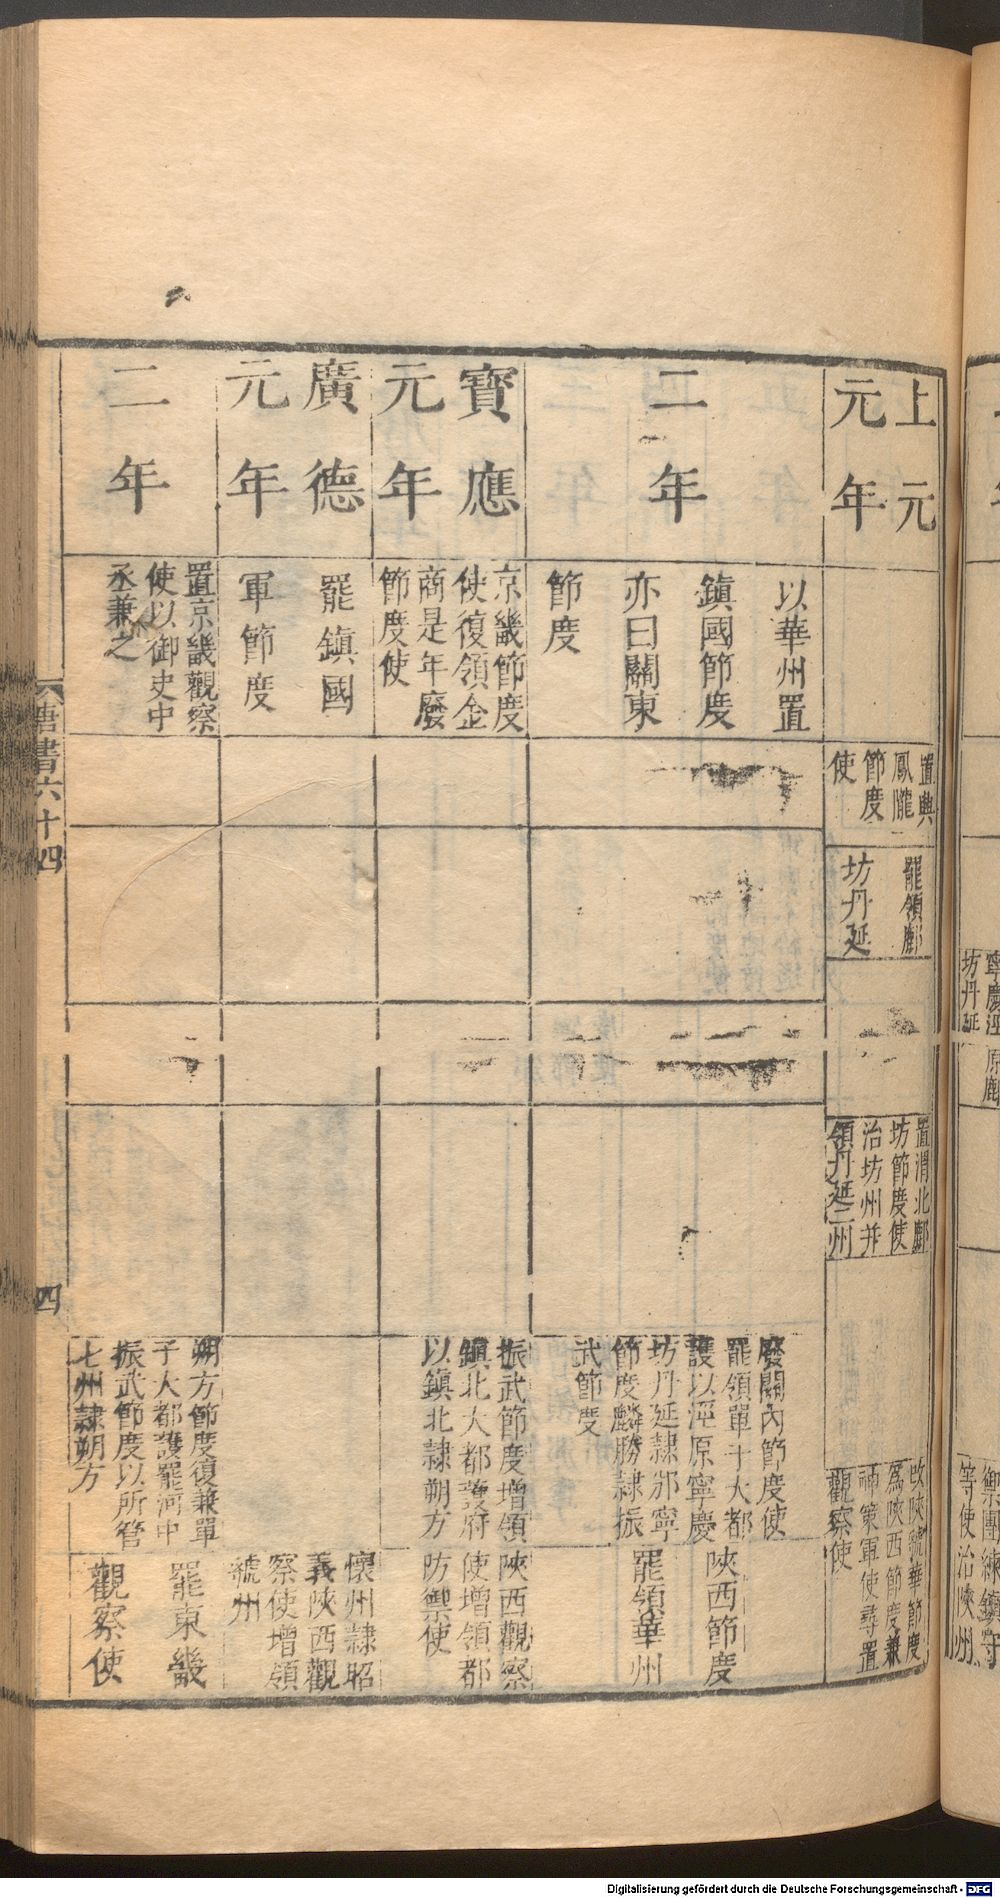 上元
元年
置興
鳳隴
節度
使
罷領鄜
坊丹延
置渭北鄜
坊節度使
治坊州并
領丹延二州
改陝虢華節度
為陝西節度兼
神策軍使尋置
觀察使
二年
以華州置
鎮國節度
亦曰關東
節度
廢關內節度使
罷領單于大都
護以涇原寧慶
坊丹延隸邠寧
節度麟勝隸振
武節度
陝西節度
罷領華州
寶應
元年
京畿節度
使復領金
商是年廢
節度使
振武節度增領
鎮北大都護府
以鎮北隸朔方
陝西觀察
使增領都
防禦使
廣德
元年
罷鎮國
軍節度
懷州隸昭
義陝西觀
察使增領
虢州
二年
置京畿觀察
使以御史中
丞兼之
朔方節度復兼單
于大都護罷河中
振武節度以所管
七州隸朔方
罷東畿
觀察使
唐書六十四
四
寧慶涇
坊丹延
原鄜
禦團練鎮守
等使治陝州
Digitalisierung gefördert durch die Deutsche Forschungsgemeinschaft - DFG